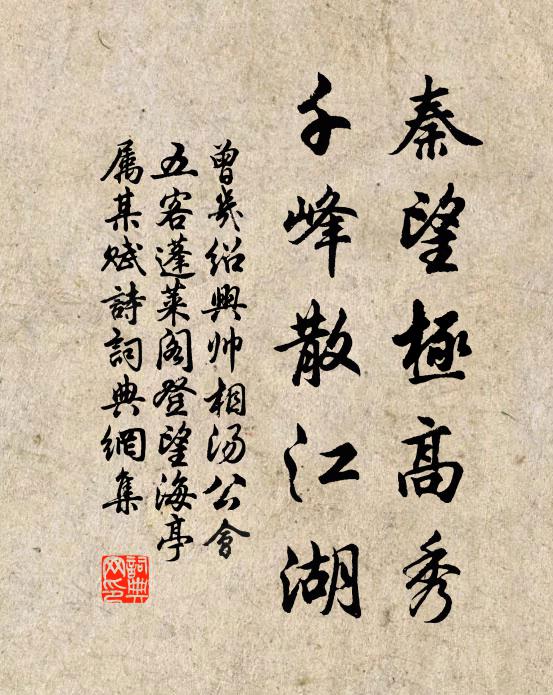 秦望極高秀
千峰散江湖
曾幾紹興帅相汤公會
五客蓬莱阁登望海亭
属某赋詩詞典網集
詞典网印